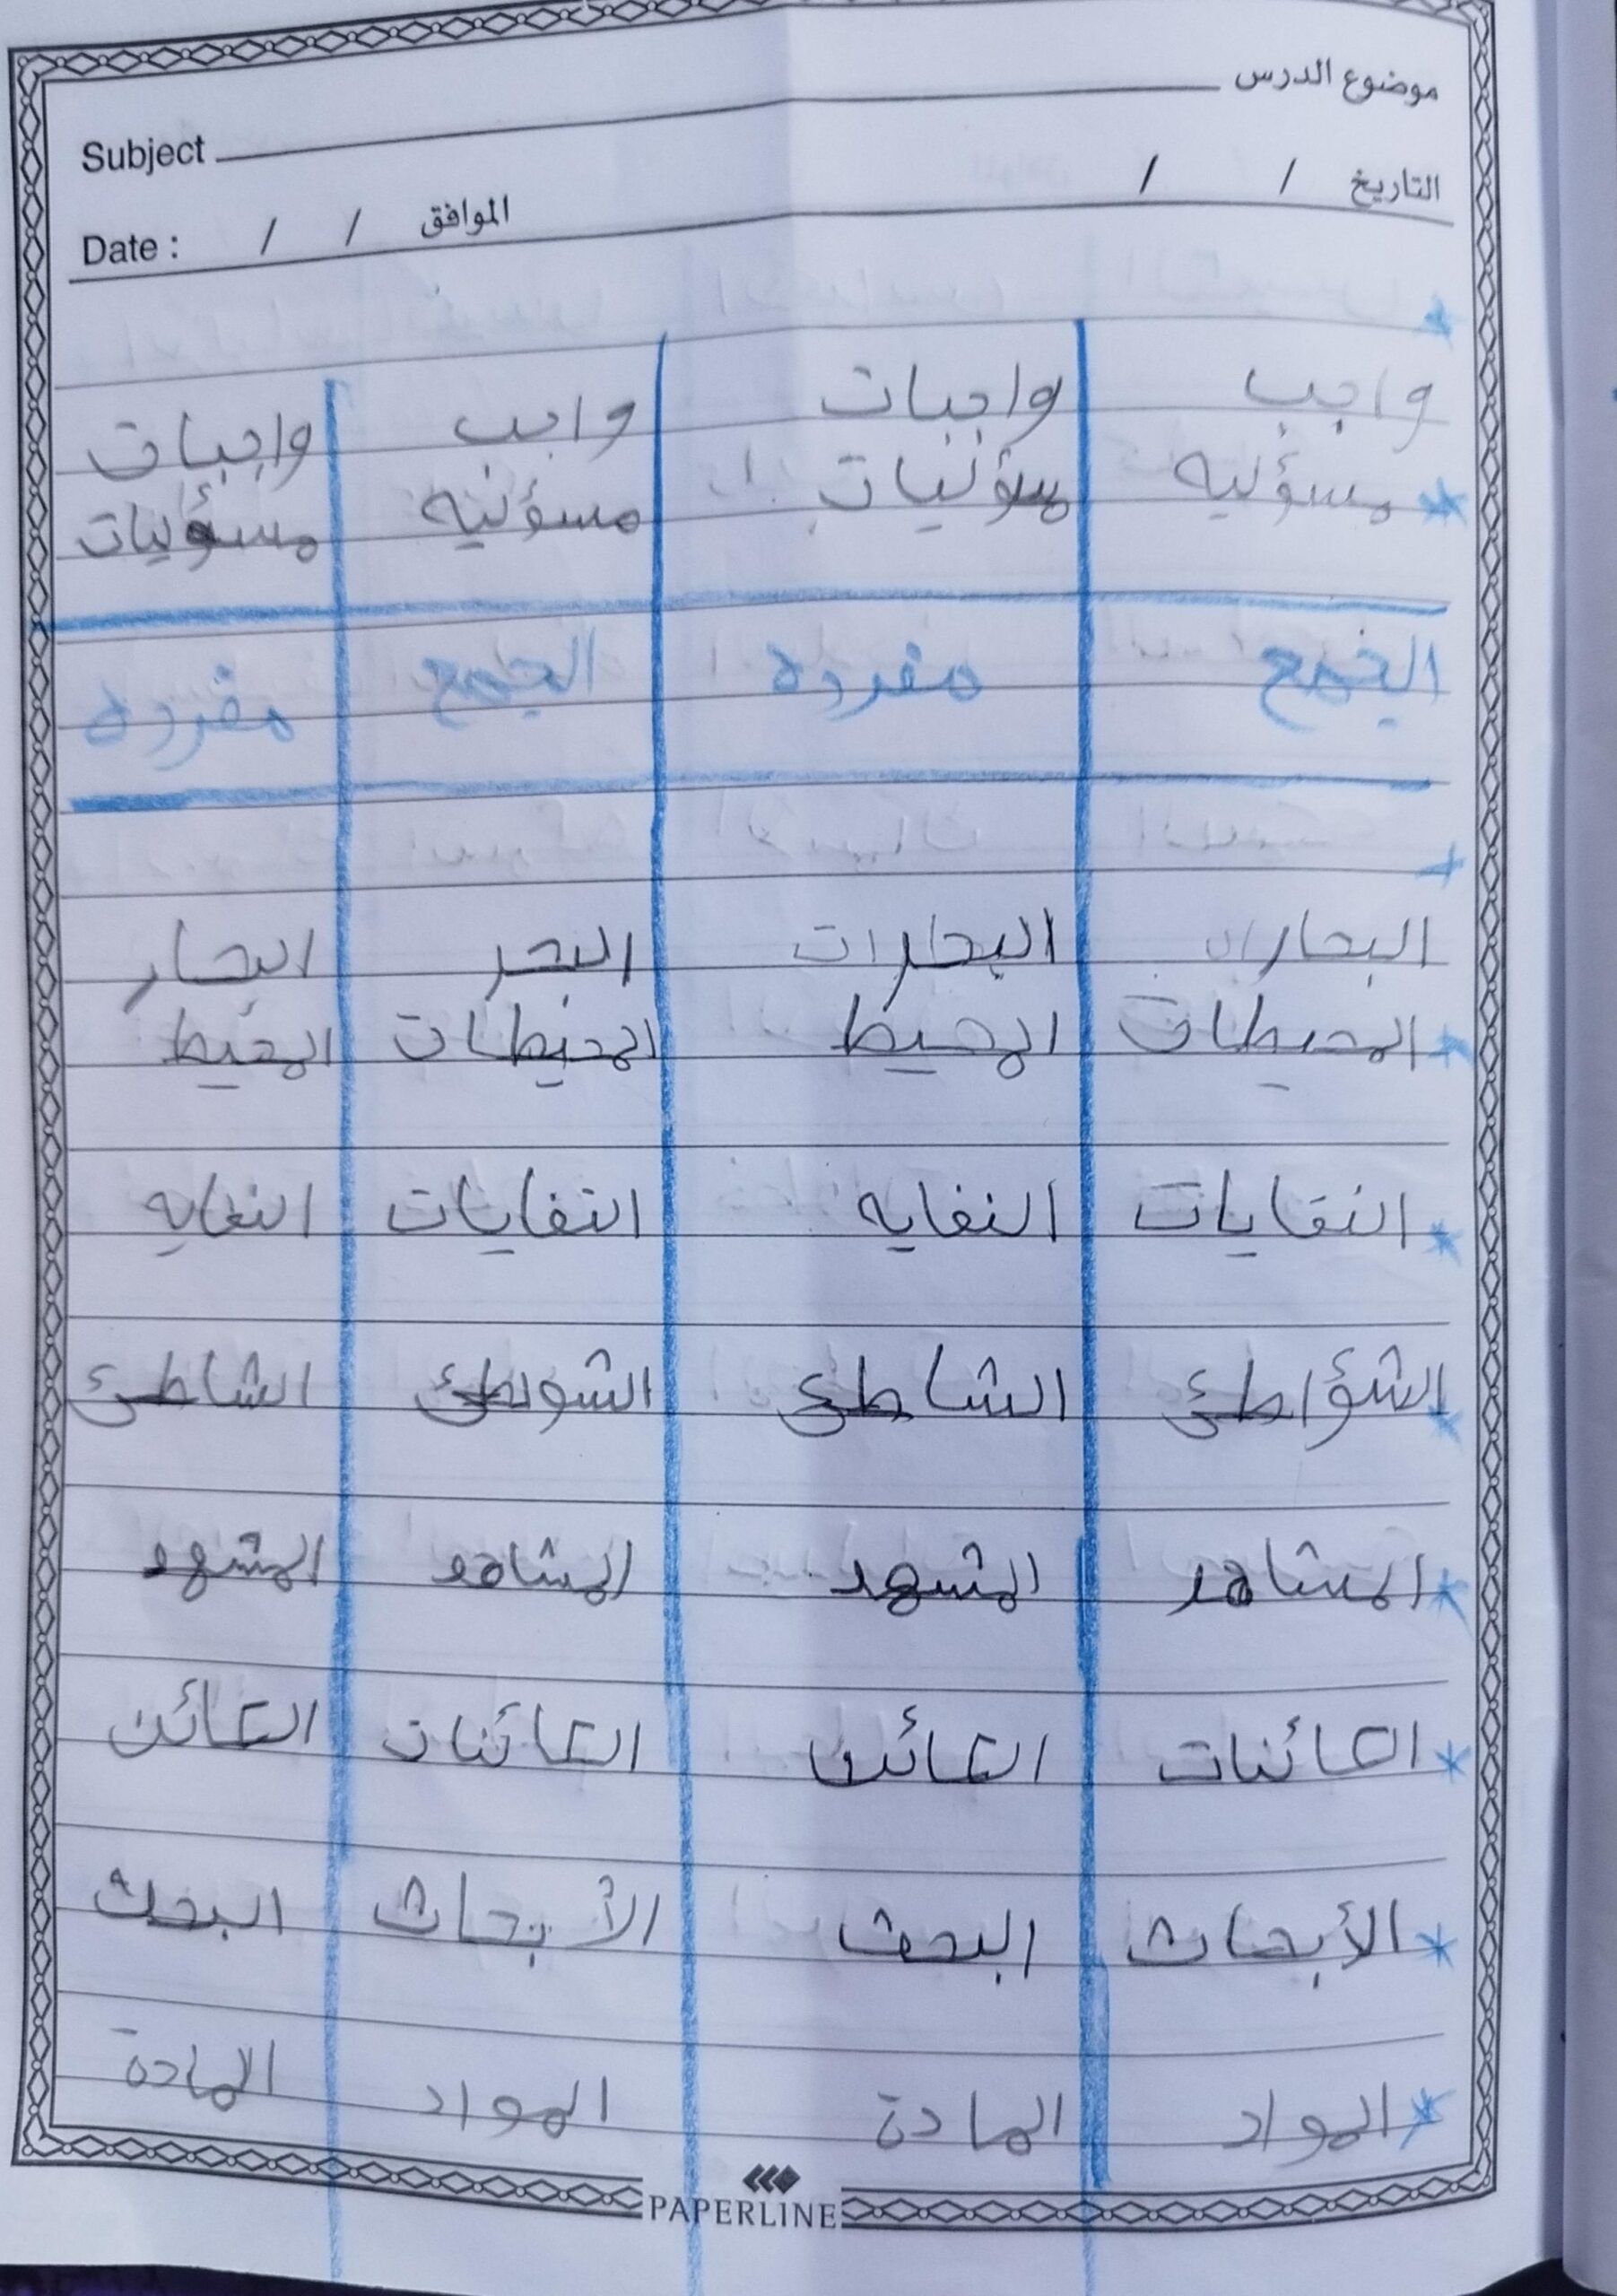 موضوع الدرس
Subject
التاريخ / /
Date : / / الموافق
واجب واجبات واجب واجبات
مسؤليه مسؤليات مسؤليه مسؤليات
الجمع مفرده الجمع مفرده
البحاران البحارات البحر البحار
المحيطات المحيط المحيطات المحيط
النقايات النفايه النفايات النفايه
الشؤاطئ الشاطئ الشوطئ الشاطئ
المشاهد المشهد المشاهد المشهد
الكائنات الكائن الكائنات الكائن
الأبحاث البحث الأبحاث البحث
المواد المادة المواد المادة
PAPERLINE